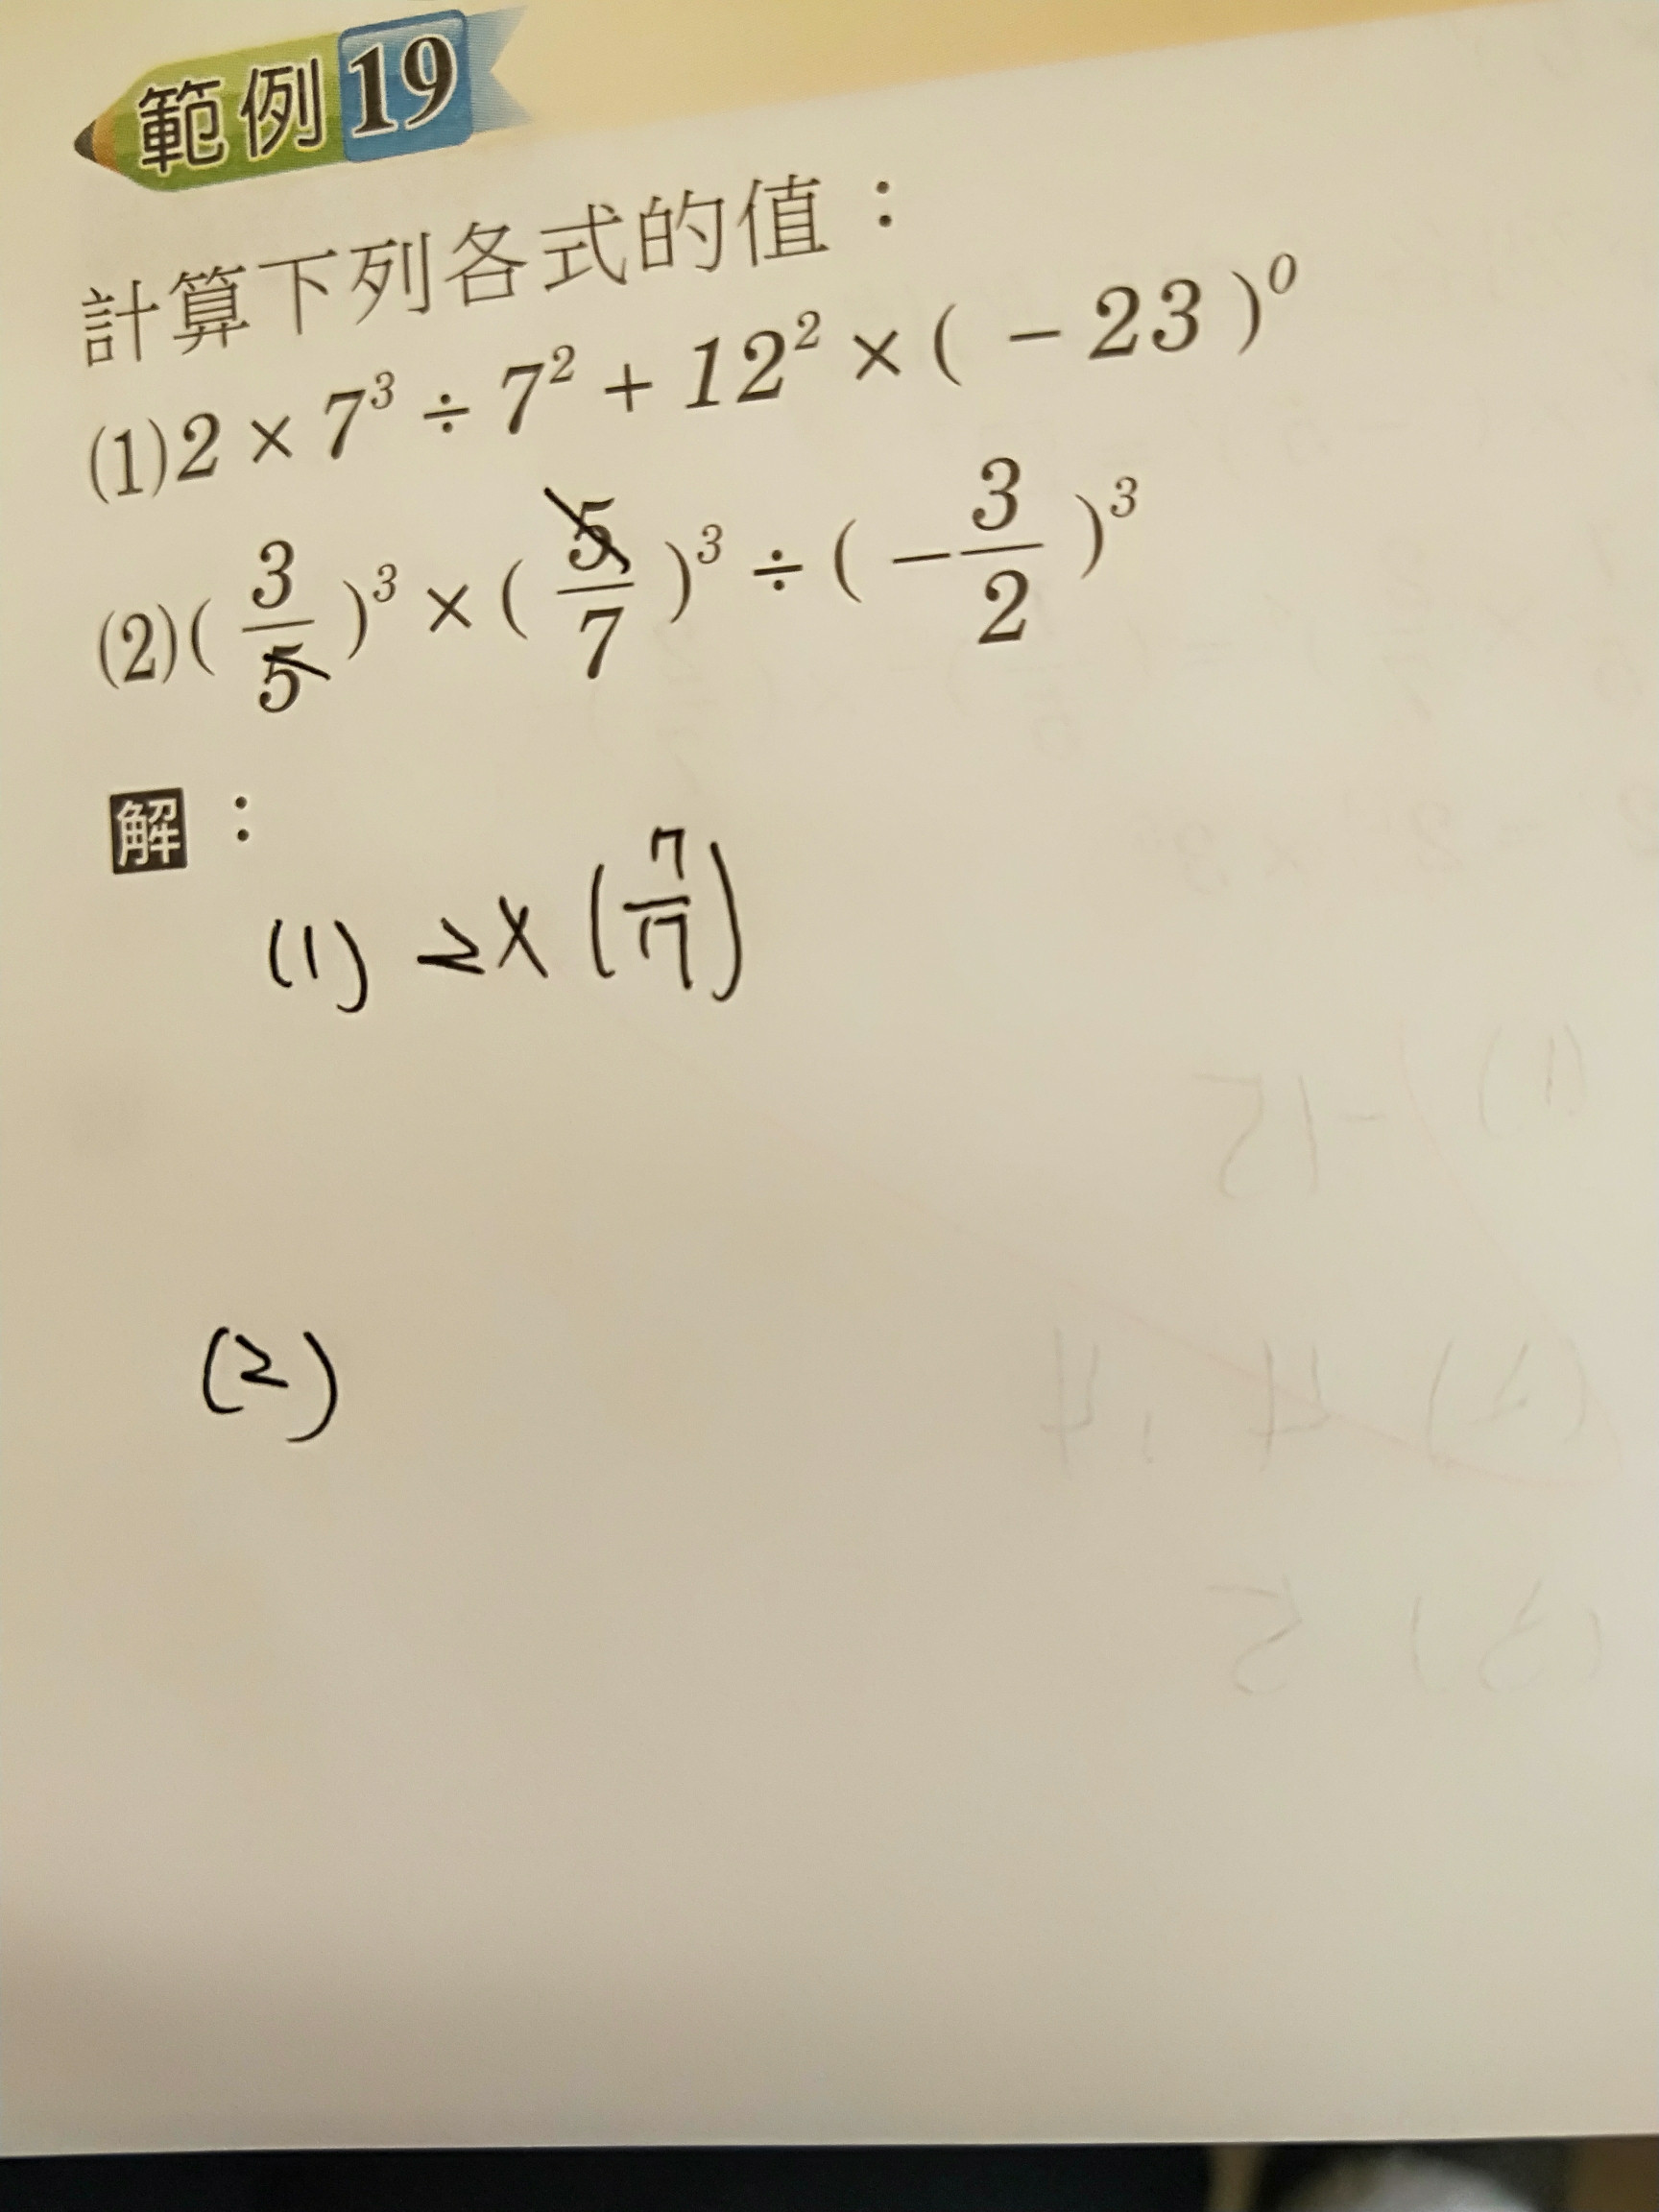 範例19
計算下列各式的值：
(1) 2 × 7³ ÷ 7² + 12² × ( − 23 )⁰
(2) ( 3/5 )³ × ( 5/7 )³ ÷ ( − 3/2 )³
解：
(1) 2 × ( 7/7 )
(2)